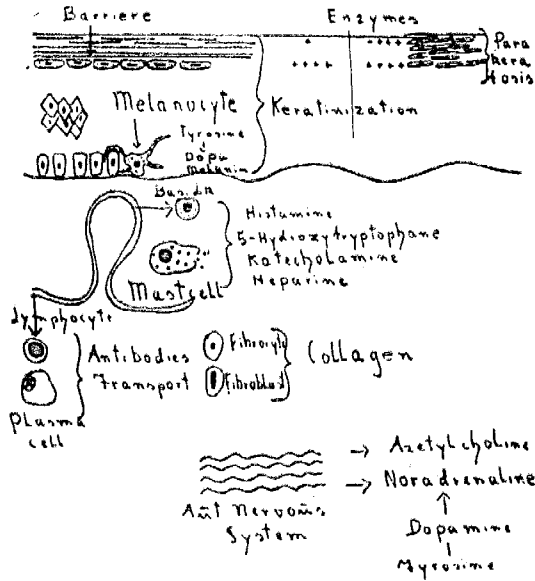 Barriere
Enzymes
Para
kera
tosis
Melanocyte
Keratinization
Tyrosine
Dopa
Melanin
Histamine
5-Hydroxytryptophane
Katecholamine
Heparine
Mastcell
Lymphocyte
Antibodies
Transport
Fibrocyt
Fibroblast
Collagen
Plasma
cell
Azetylcholine
Noradrenaline
Aut Nervous
System
Dopamine
Tyrosine